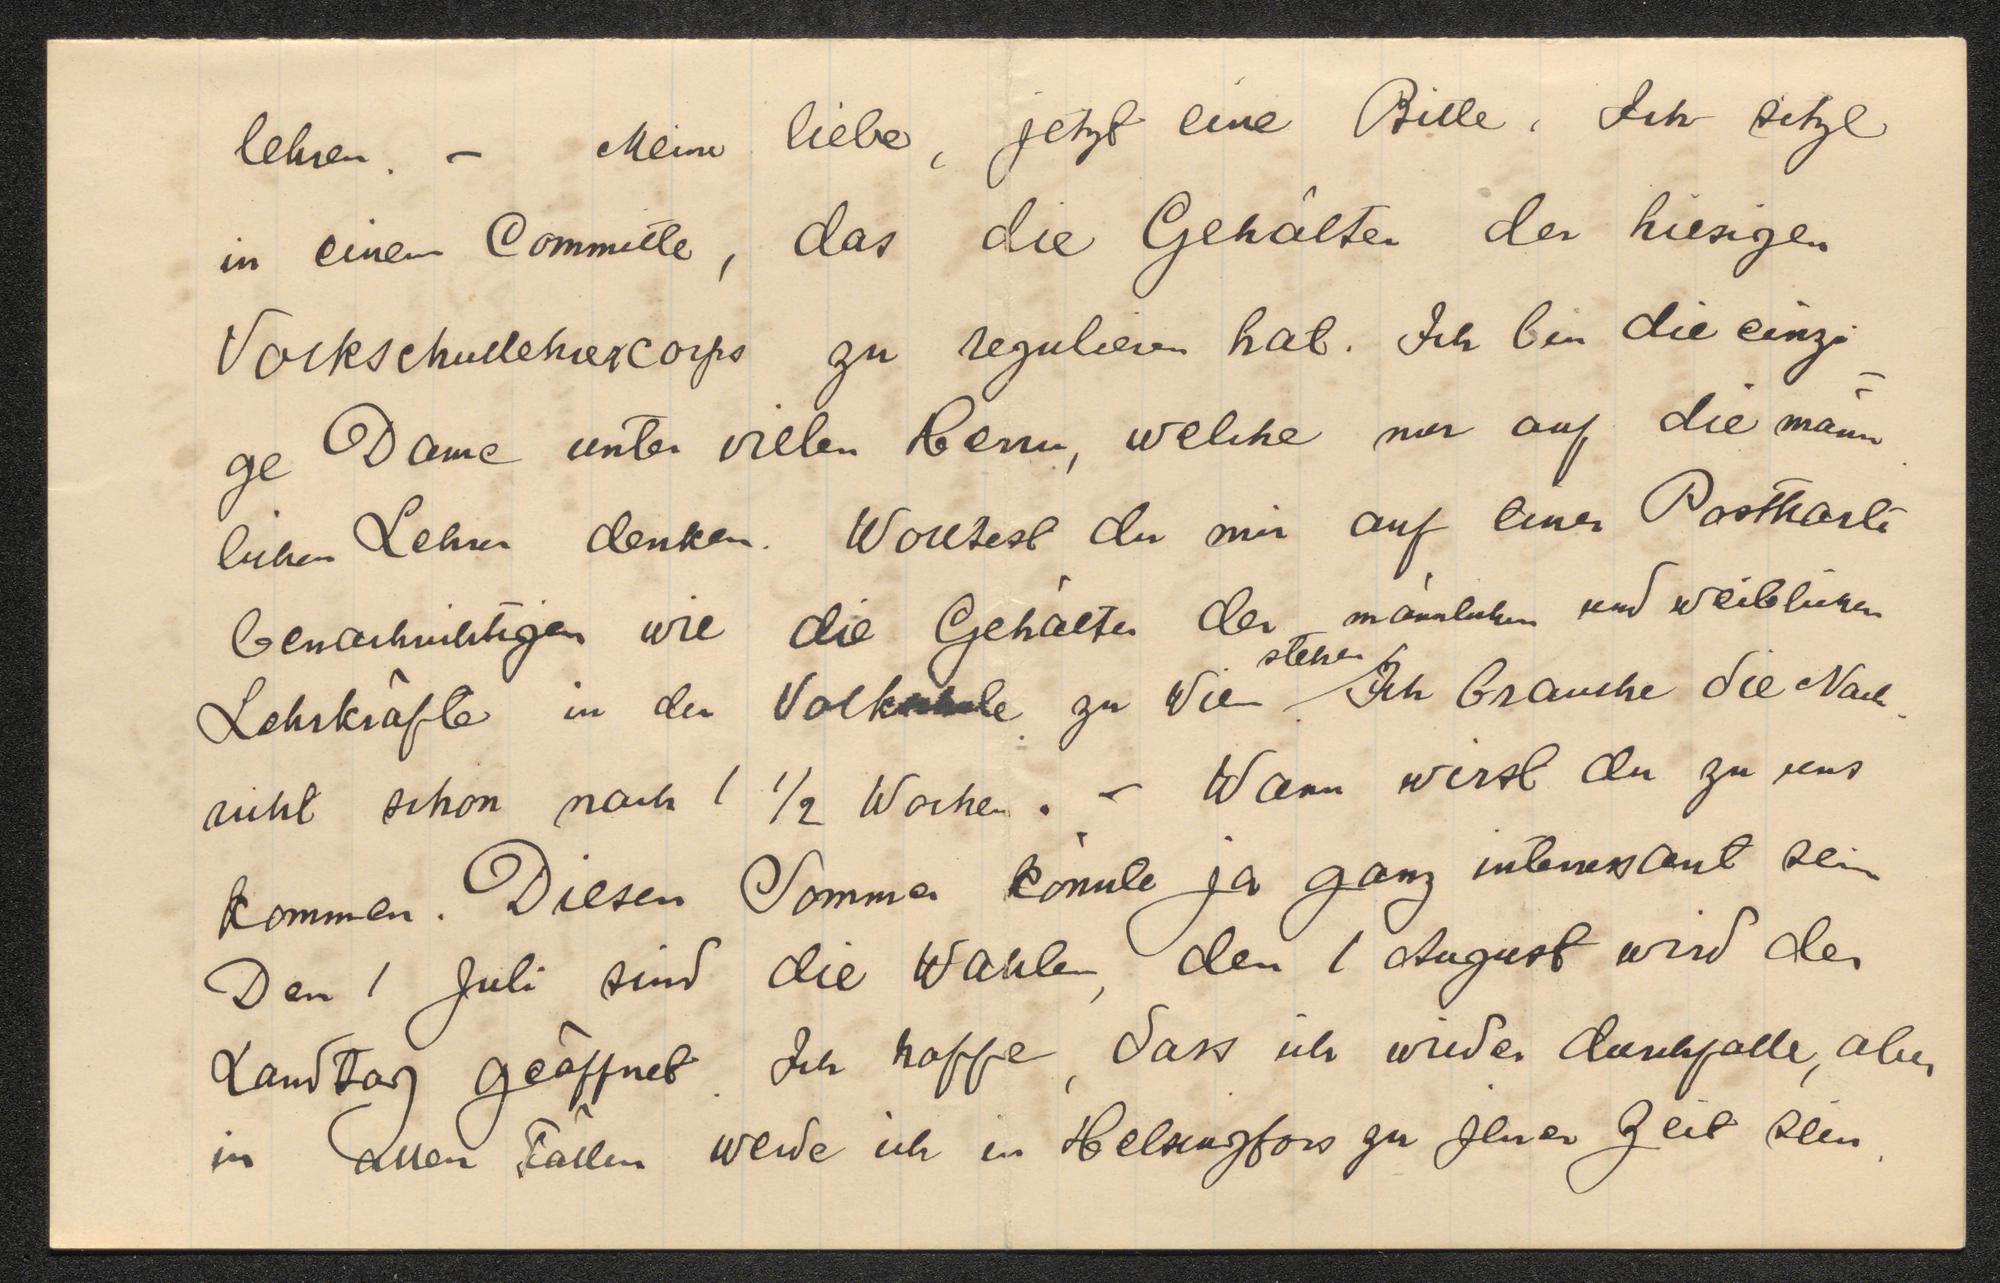 lehren. – Meine liebe, jetzt eine Bitte. Ich sitze
in einem Committe, das die Gehälter der hiesigen
Volkschullehrercorps zu regulieren hat. Ich bin die einzi
ge Dame unter vielen Herrn, welche nur auf die männ
lichen Lehrer denken. Wolltest du mir auf einer Postkarte
benachrichtigen wie die Gehälter der männlichen und weiblichen
stehen
Lehrkräfte in der Volkschule zu Wien. Ich brauche die Nach
richt schon nach 1 1/2 Wochen. – Wann wirst du zu uns
kommen. Diesen Sommer könnte ja ganz interessant sein
Den 1 Juli sind die Wahlen, den 1 August wird der
Landtag geöffnet. Ich hoffe, dass ich wieder durchfalle, aber
in allen Fällen werde ich in Helsingfors zu jener Zeit sein.